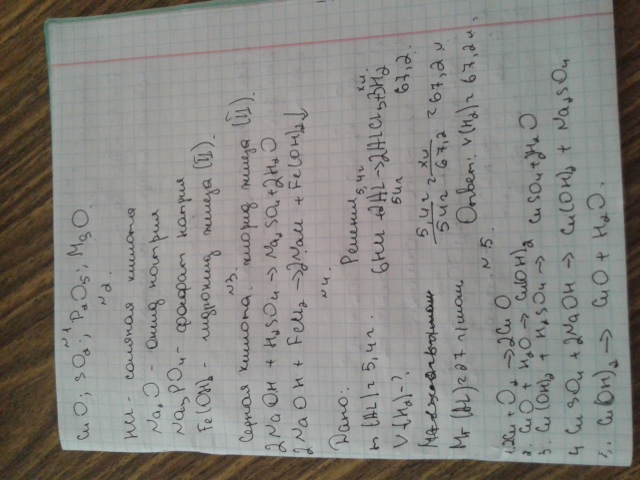 №1
CuO; SO₂; P₂O₅; MgO.
№2.
HCl - соляная кислота
Na₂O - оксид натрия
Na₃PO₄ - фосфат натрия
Fe(OH)₂ - гидроксид железа (II).
№3.
Серная кислота. хлорид железа (II).
2NaOH + H₂SO₄ → Na₂SO₄ + 2H₂O
2NaOH + FeCl₂ → 2NaCl + Fe(OH)₂↓
№4.
Дано:
m(Al) = 5,4г.
V(H₂) - ?
Mr(Al) = 27 г/моль
Решение
5,4г хл.
6HCl + 2Al → 2AlCl₃ + 3H₂
54г 67,2.
5,4г = хл
54г = 67,2 = 67,2 л
Ответ: V(H₂) = 67,2л.
№5.
1. 2Cu + O₂ → 2CuO
2. CuO + H₂O → Cu(OH)₂
3. Cu(OH)₂ + H₂SO₄ → CuSO₄ + 2H₂O
4 CuSO₄ + 2NaOH → Cu(OH)₂ + Na₂SO₄
5. Cu(OH)₂ → CuO + H₂O.